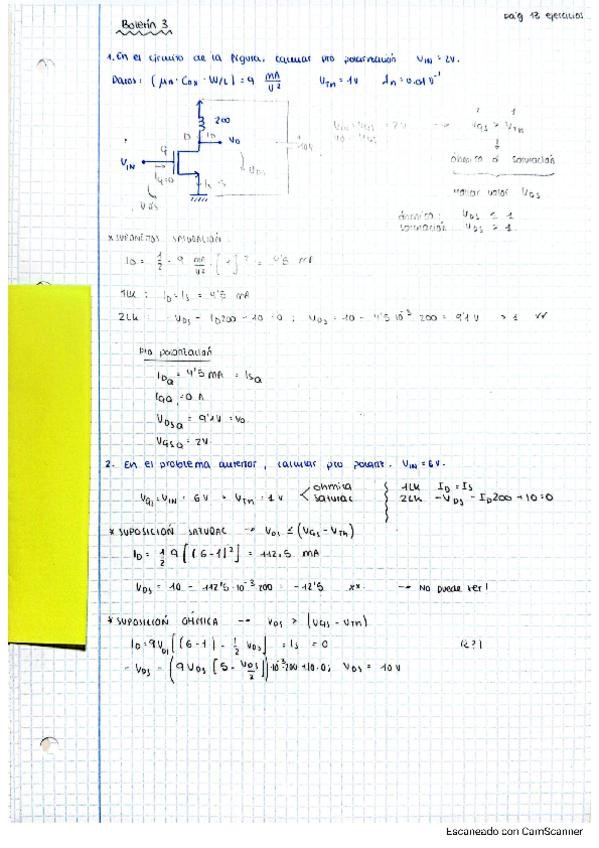 pág 12 ejercicios
Boletín 3
1. En el circuito de la figura, calcular pto polarización VIN = 2V.
Datos: (μn · Cox · W/L) = 9 mA/V² VTn = 1V λn = 0.01V⁻¹
200
D ID
VO
10V
G
VIN
IG=0
IS S
VGS
VDS
= 2V → VGS > VTn
2 1
óhmica o saturación
hallar valor VDS
óhmica: VDS ≤ 1
saturación VDS > 1
* SUPONEMOS SATURACIÓN:
ID = 1/2 · 9 mA/V² · [ ]² = 4'5 mA
1LK: ID = IS = 4'5 mA
2LK: -VDS - ID200 - 10 = 0 ; VDS = 10 - 4'5·10⁻³ 200 = 9'1V > 1 VV
pto polarización
IDQ = 4'5 mA = ISQ
IGQ = 0 A
VDSQ = 9'1V = VO
VGSQ = 2V
2. En el problema anterior, calcular pto polariz. VIN = 6V.
VGS = VIN = 6V > VTn = 1V
óhmica
saturac
1LK ID = IS
2LK -VDS - ID200 + 10 = 0
* SUPOSICIÓN SATURAC → VDS ≤ (VGS - VTn)
ID = 1/2 9 [(6-1)²] = 112.5 mA
VDS = 10 - 112'5·10⁻³ 200 = -12'5 xx → No puede ser!
* SUPOSICIÓN ÓHMICA → VDS > (VGS - VTn)
ID = 9VDS [(6-1) - 1/2 VDS] = IS = 0 (?)
- VDS - (9VDS [5 - VDS/2])·10⁻³·200 + 10 = 0; VDS = 10V
Escaneado con CamScanner